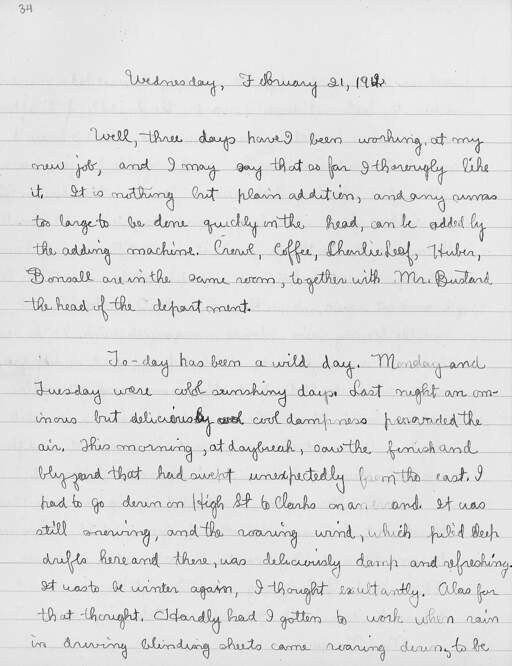 34
Wednesday, February 21, 1912
Well, three days have I been working at my
new job, and I may say that so far I thorougly like
it. It is nothing but plain addition, and any sums
too large to be done quickly in the head, can be added by
the adding machine. Crowl, Coffee, Charlie Leaf, Huber,
Bonsall are in the same room, together with Mr. Bustard
the head of the department.
To-day has been a wild day. Monday and
Tuesday were cold sunshiny days. Last night an om-
inous but deliciously cool dampness pervaded the
air. This morning, at daybreak, saw the fienish and
blizzard that had swept unexpectedly from the east. I
had to go down on High St to Clarks on an errand. It was
still snowing, and the roaring wind, which pil'd deep
drifts here and there, was deliciously damp and refreshing.
It was to be winter again, I thought exultantly. Alas for
that thought. Hardly had I gotten to work when rain
in driving blinding sheets came roaring down, to be